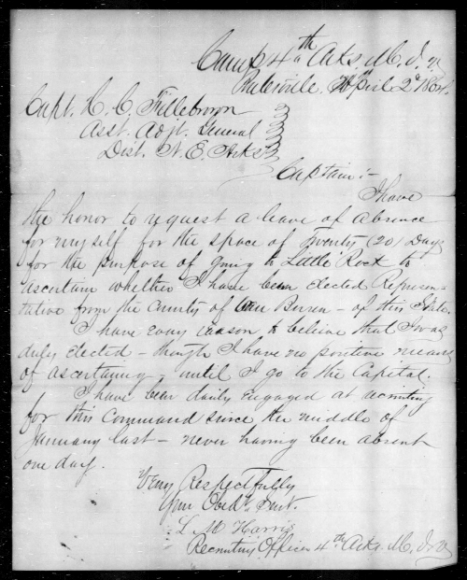 Camp 4th Arks. M. I. V.
Batesville April 2d 1864.
Capt. C. C. Fillebrown
Asst. Adjt. General
Dist. N. E. Arks
Captain :-
I have
the honor to request a leave of absence
for myself for the space of Twenty (20) Days
for the purpose of going to Little Rock to
ascertain whether I have been elected Represen-
tative from the County of Van Buren - of this State.
I have every reason to believe that I was
duly elected - though I have no positive means
of ascertaing, until I go to the Capital.
I have been daily engaged at recruiting
for this Command since the middle of
January last - never having been absent
one day.
Very Respectfully
Your Obedt. Svnt.
L. M. Harris
Recruiting Officer 4th Arks. M. I. V.